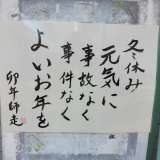 冬休み
元気に
事故なく
事件なく
よいお年を
卯年師走